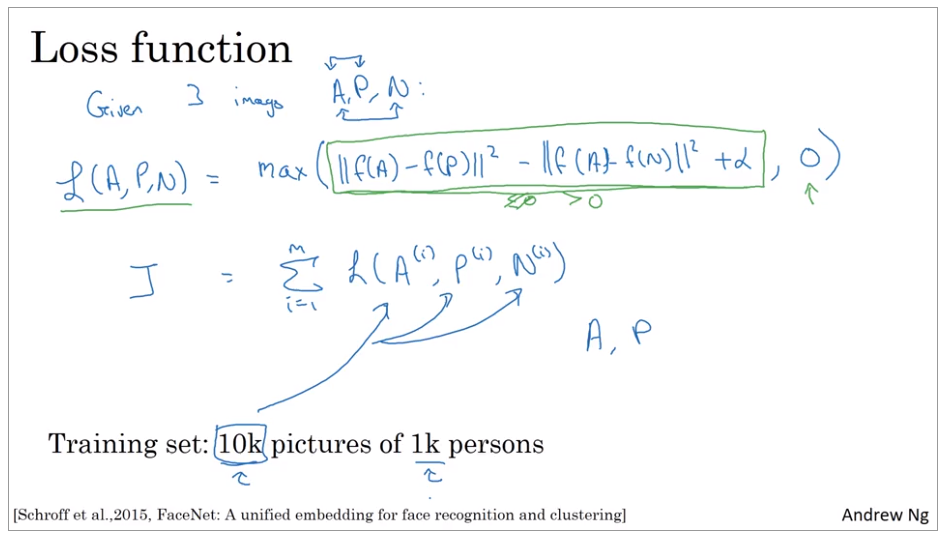 Loss function
Given 3 images A, P, N :
L(A, P, N) = max(||f(A) - f(P)||² - ||f(A) - f(N)||² + α, 0)
≤0 >0
J = Σ_{i=1}^{m} L(A^{(i)}, P^{(i)}, N^{(i)})
A, P
Training set: 10k pictures of 1k persons
[Schroff et al.,2015, FaceNet: A unified embedding for face recognition and clustering]
Andrew Ng